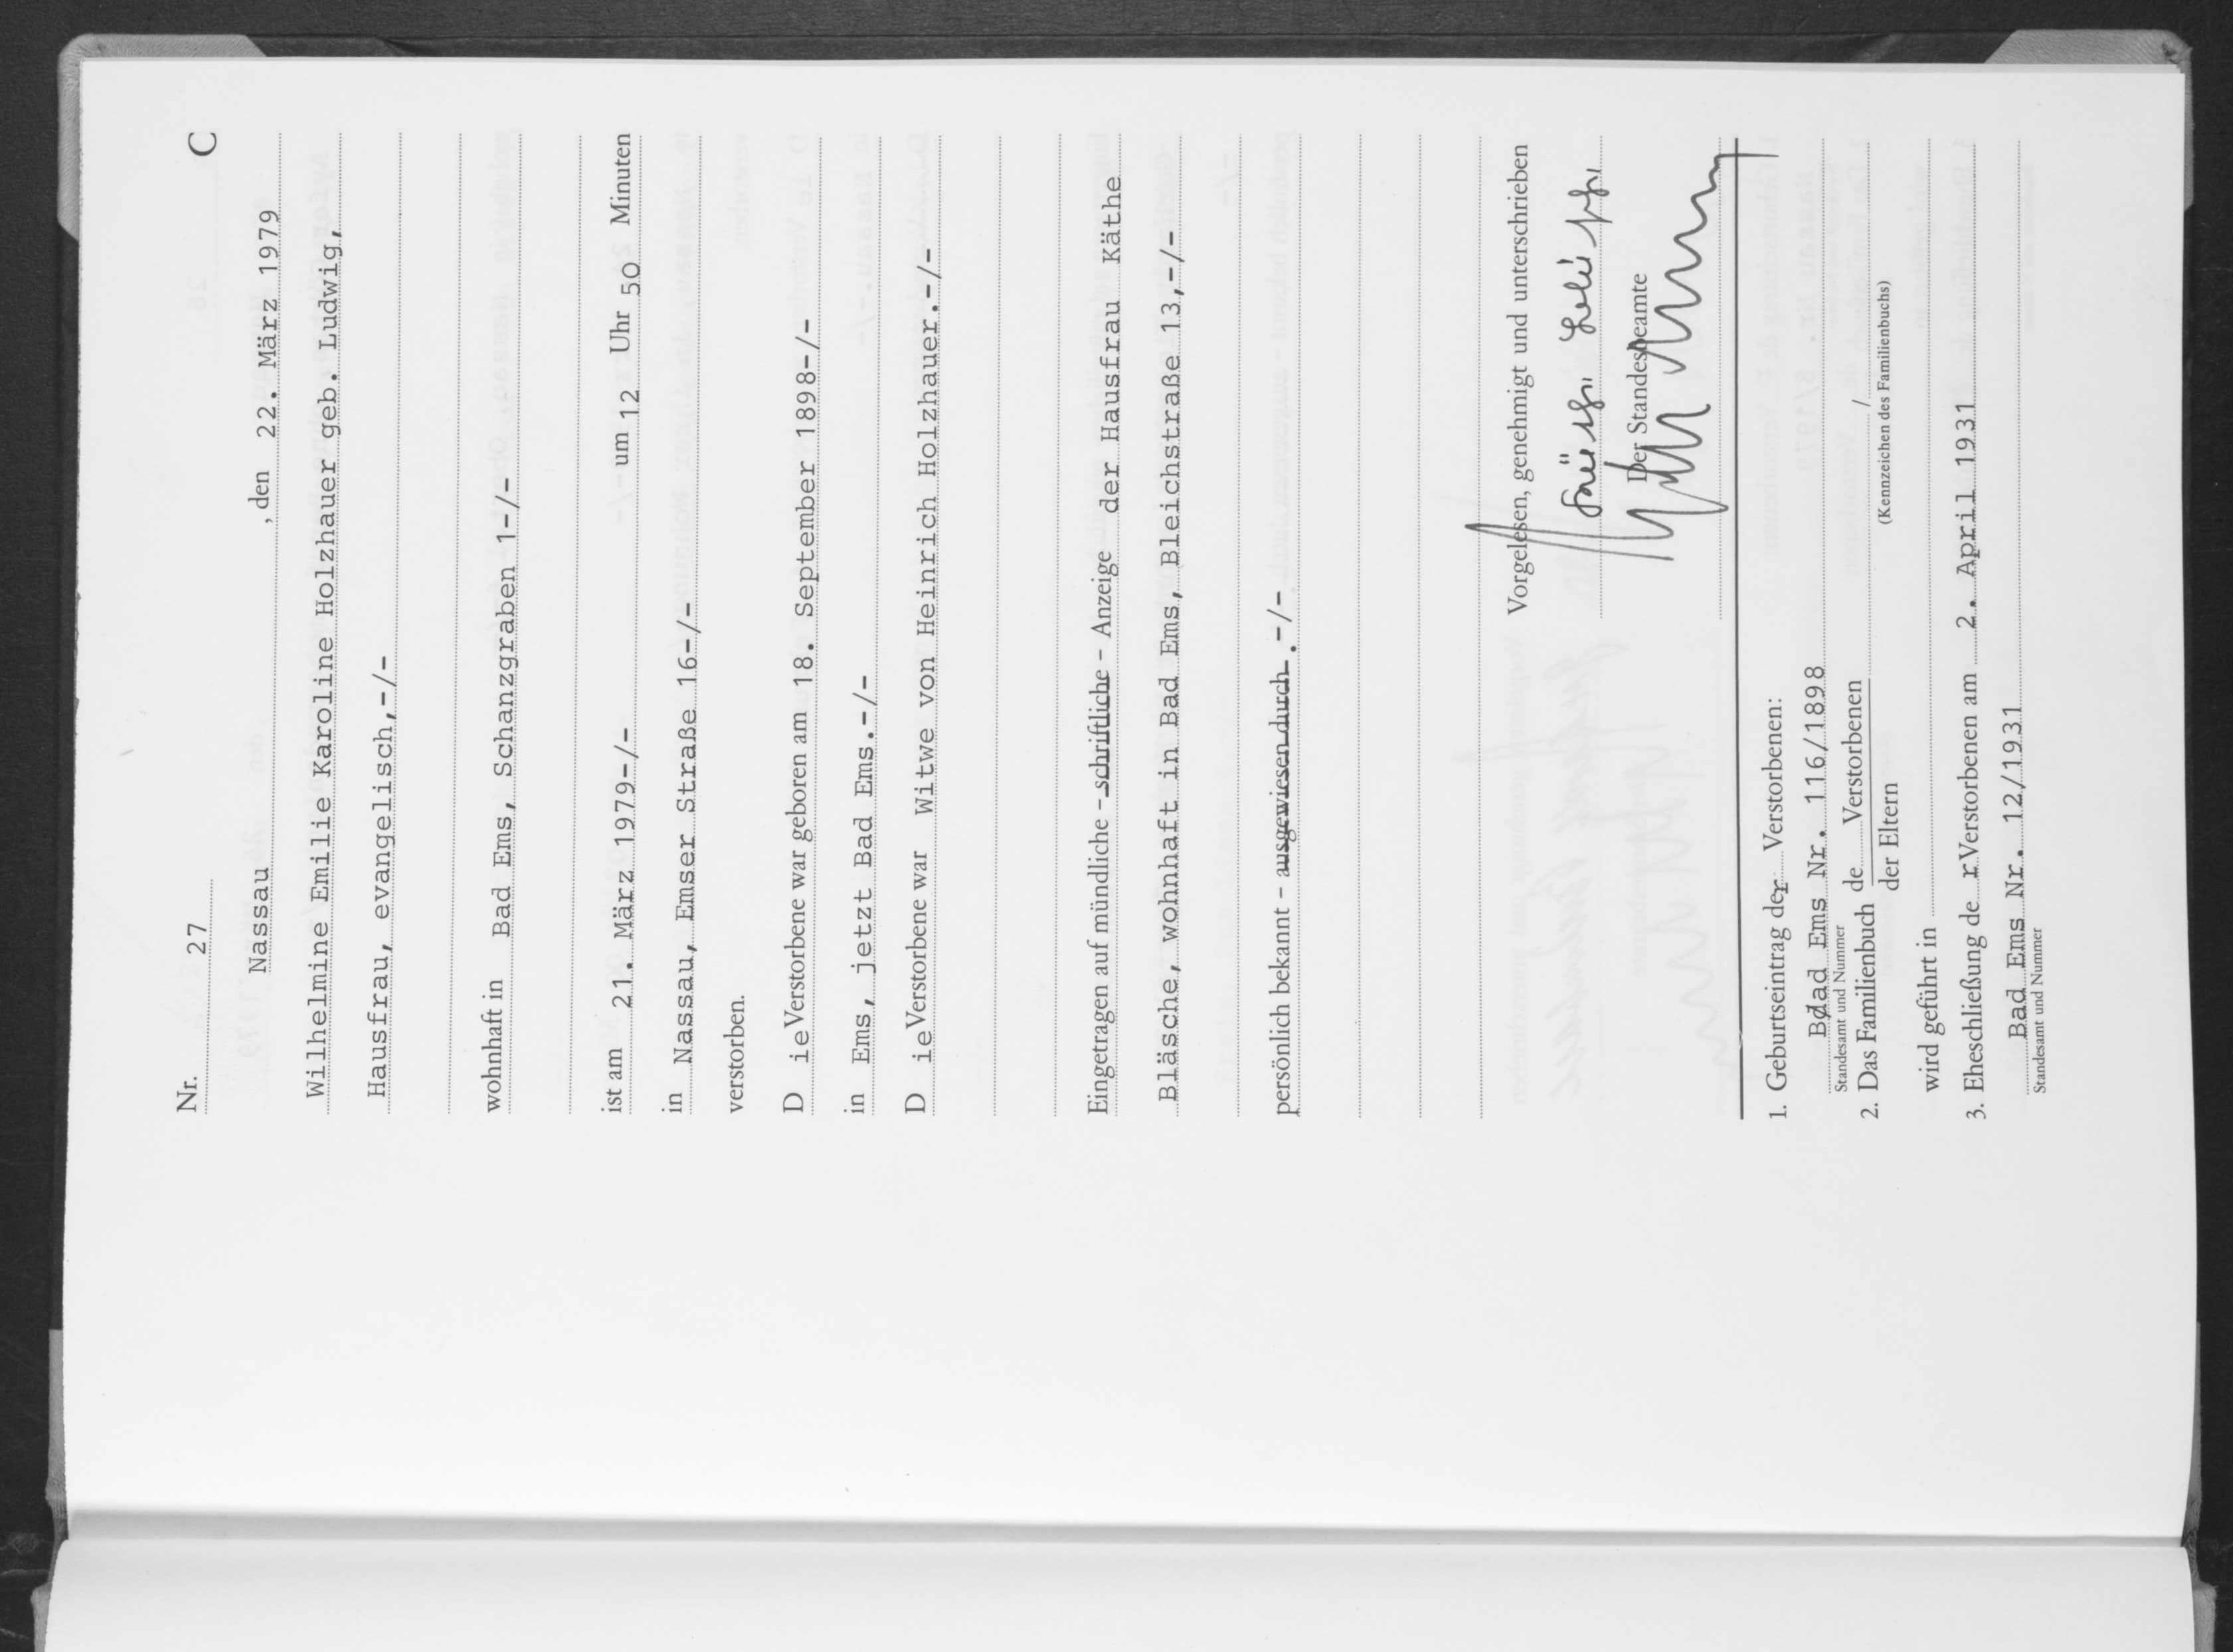 Nr. 27 C
Nassau, den 22. März 1979
Wilhelmine Emilie Karoline Holzhauer geb. Ludwig,
Hausfrau, evangelisch,-/-
wohnhaft in Bad Ems, Schanzgraben 1-/-
ist am 21. März 1979-/- um 12 Uhr 50 Minuten
in Nassau, Emser Straße 16-/-
verstorben.
D ie Verstorbene war geboren am 18. September 1898-/-
in Ems, jetzt Bad Ems.-/-
D ie Verstorbene war Witwe von Heinrich Holzhauer.-/-
Eingetragen auf mündliche - schriftliche - Anzeige der Hausfrau Käthe
Bläsche, wohnhaft in Bad Ems, Bleichstraße 13,-/-
persönlich bekannt - ausgewiesen durch .-/-
Vorgelesen, genehmigt und unterschrieben
Der Standesbeamte
1. Geburtseintrag der Verstorbenen:
Bdad Ems Nr. 116/1898
Standesamt und Nummer
2. Das Familienbuch de Verstorbenen /
der Eltern (Kennzeichen des Familienbuchs)
wird geführt in
3. Eheschließung de r Verstorbenen am 2. April 1931
Bad Ems Nr. 12/1931
Standesamt und Nummer